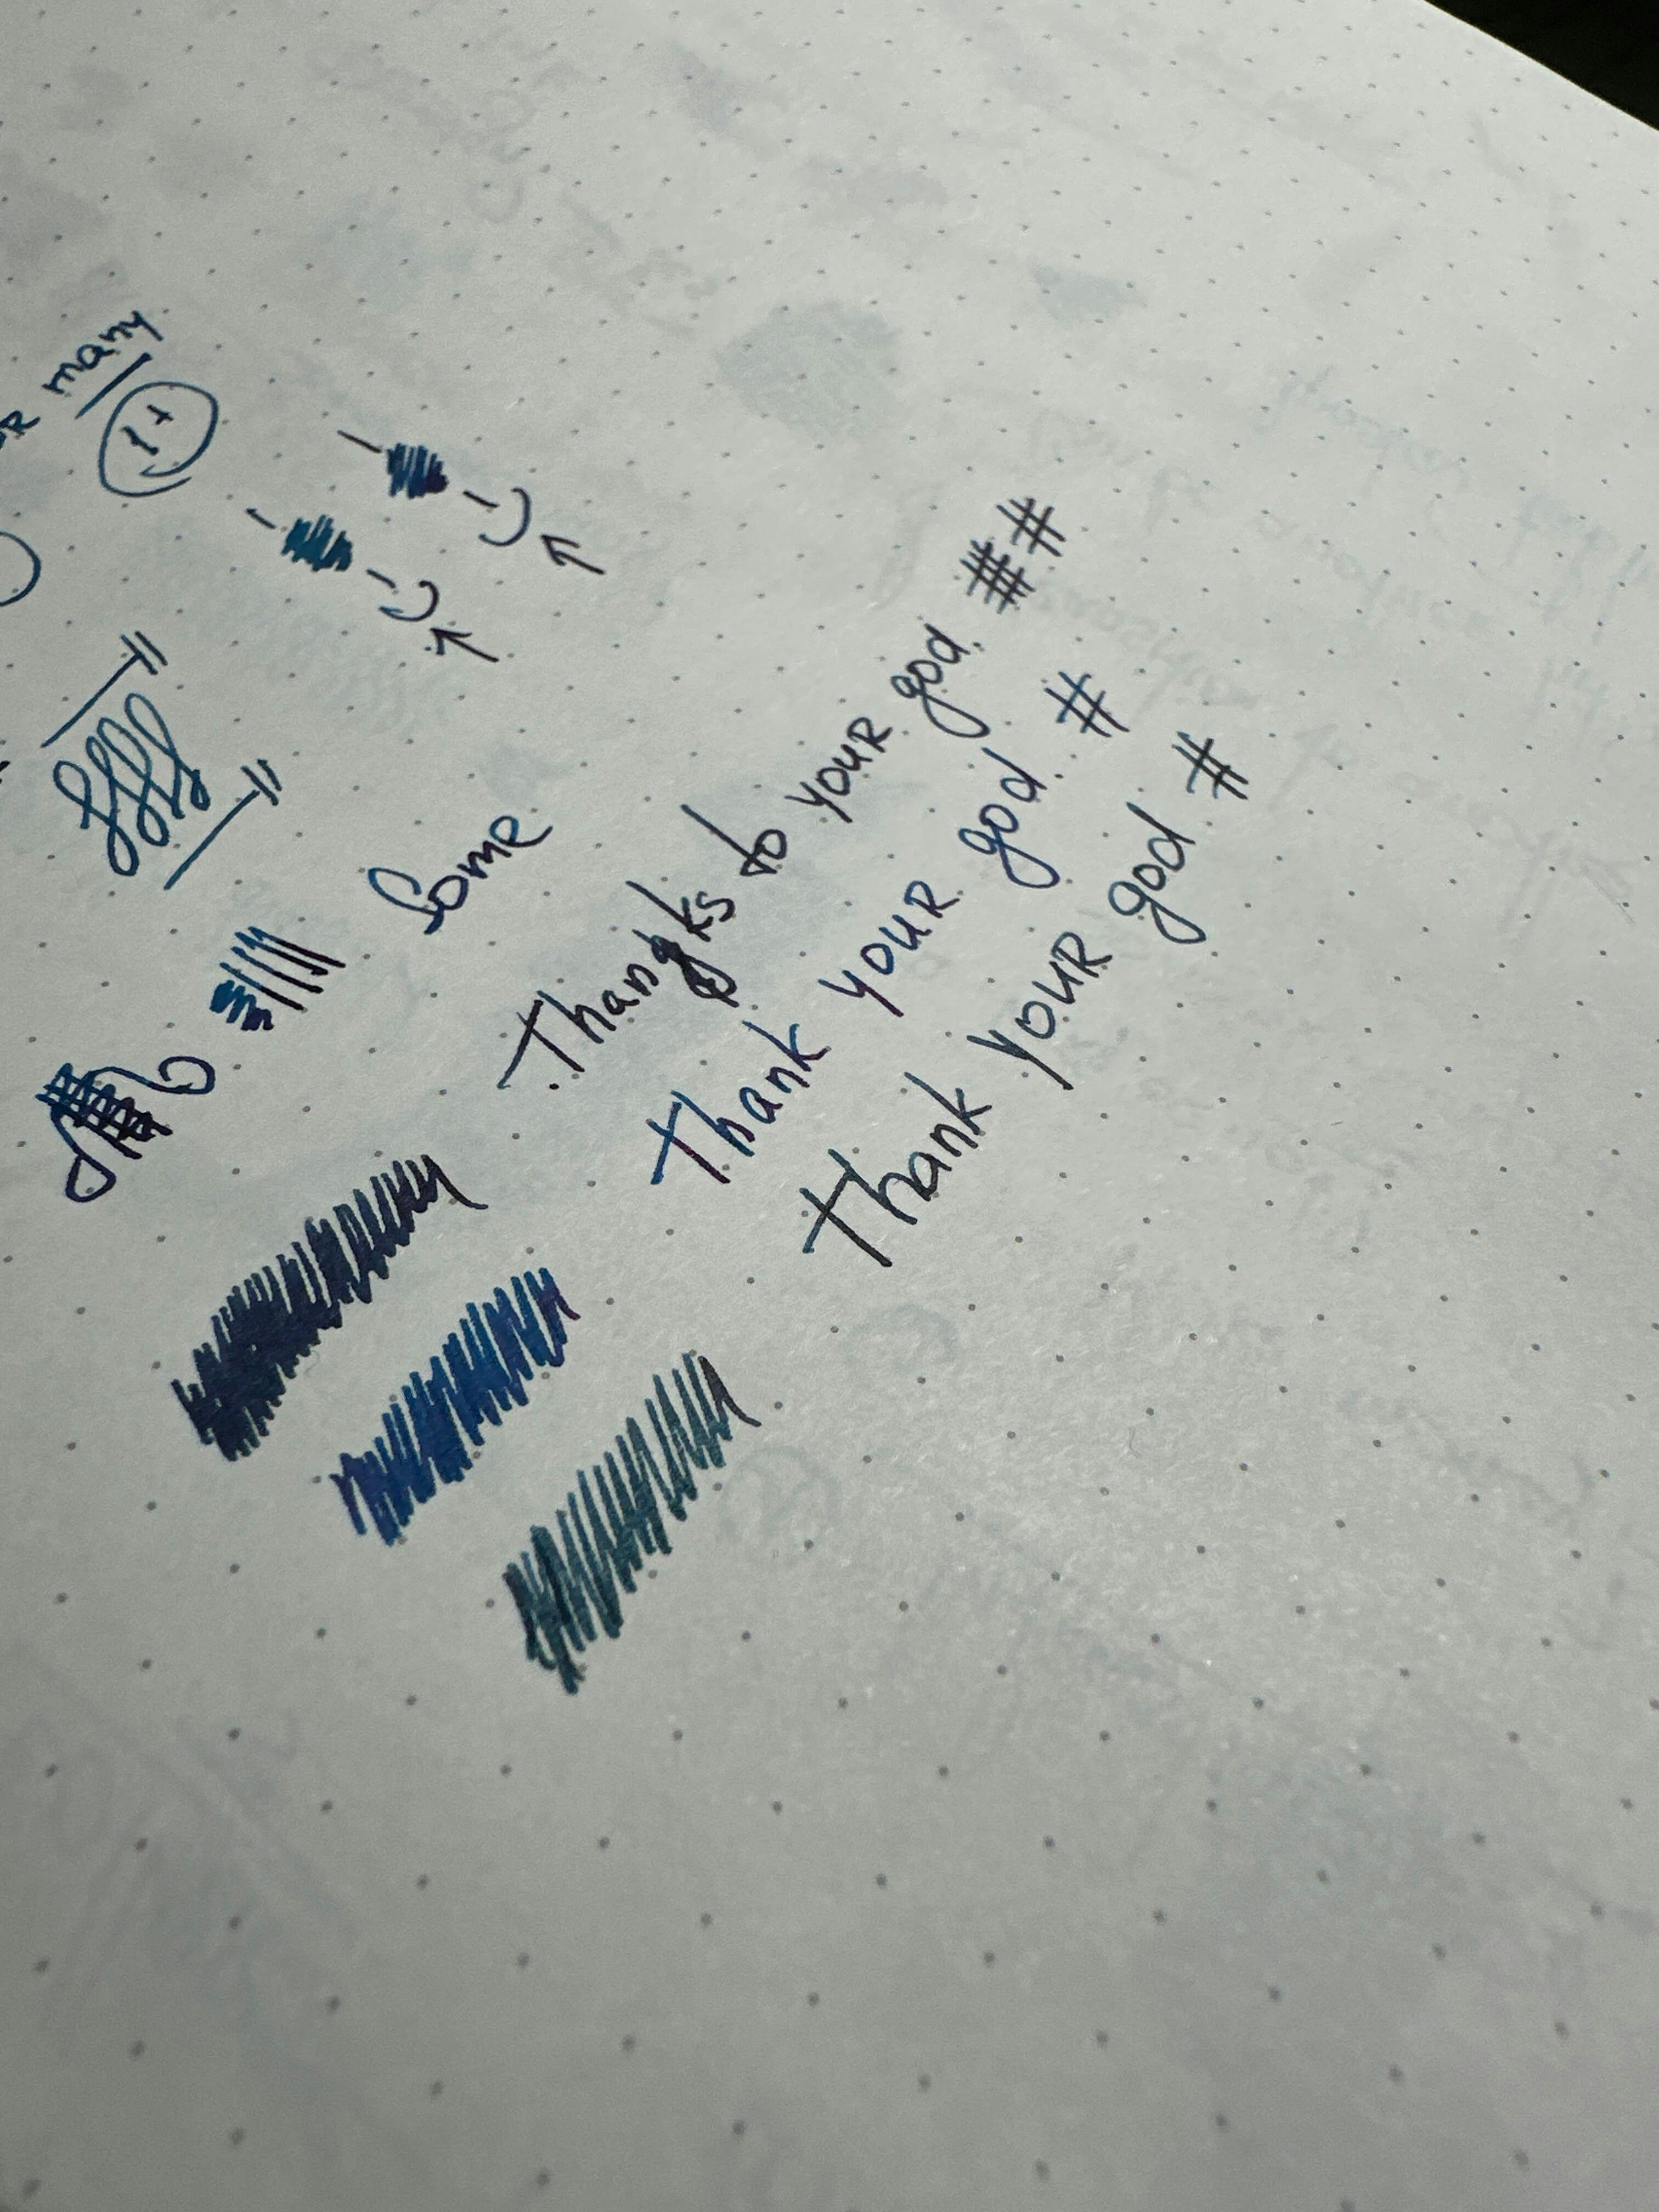 many
1+
Some
Thangks to your god ##
Thank your god #
Thank your god #